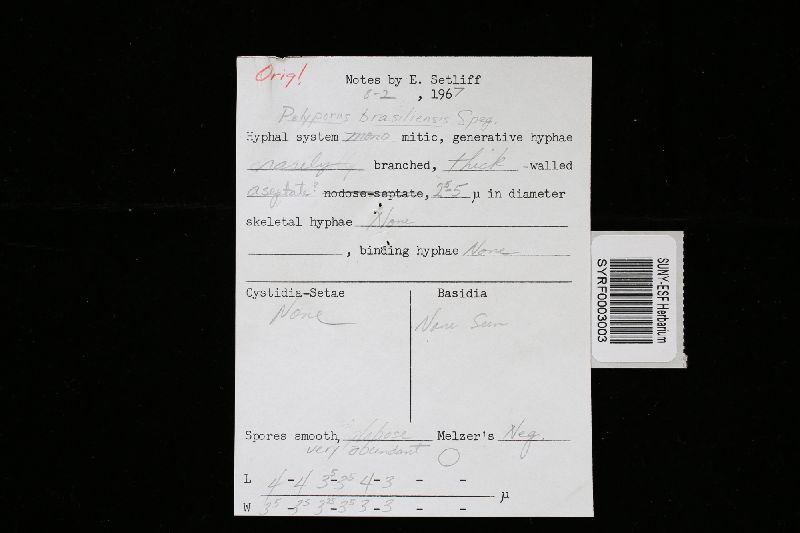 Orig!
Notes by E. Setliff
8-2 , 1967
Polyporus brasiliensis Speg.
Hyphal system mono mitic, generative hyphae
rarely branched, thick -walled
aseptate? nodose-septate, 2⁵-5 µ in diameter
skeletal hyphae None
, binding hyphae None
Cystidia-Setae Basidia
None None Seen
Spores smooth, Melzer's Neg.
very abundant
L 4 - 4 3⁵-3⁵ 4 - 3 - -
µ
W 3⁵ - 3⁵ 3²⁵ - 3⁵ 3 - 3 - -
SUNY-ESF Herbarium
SYRF0003003